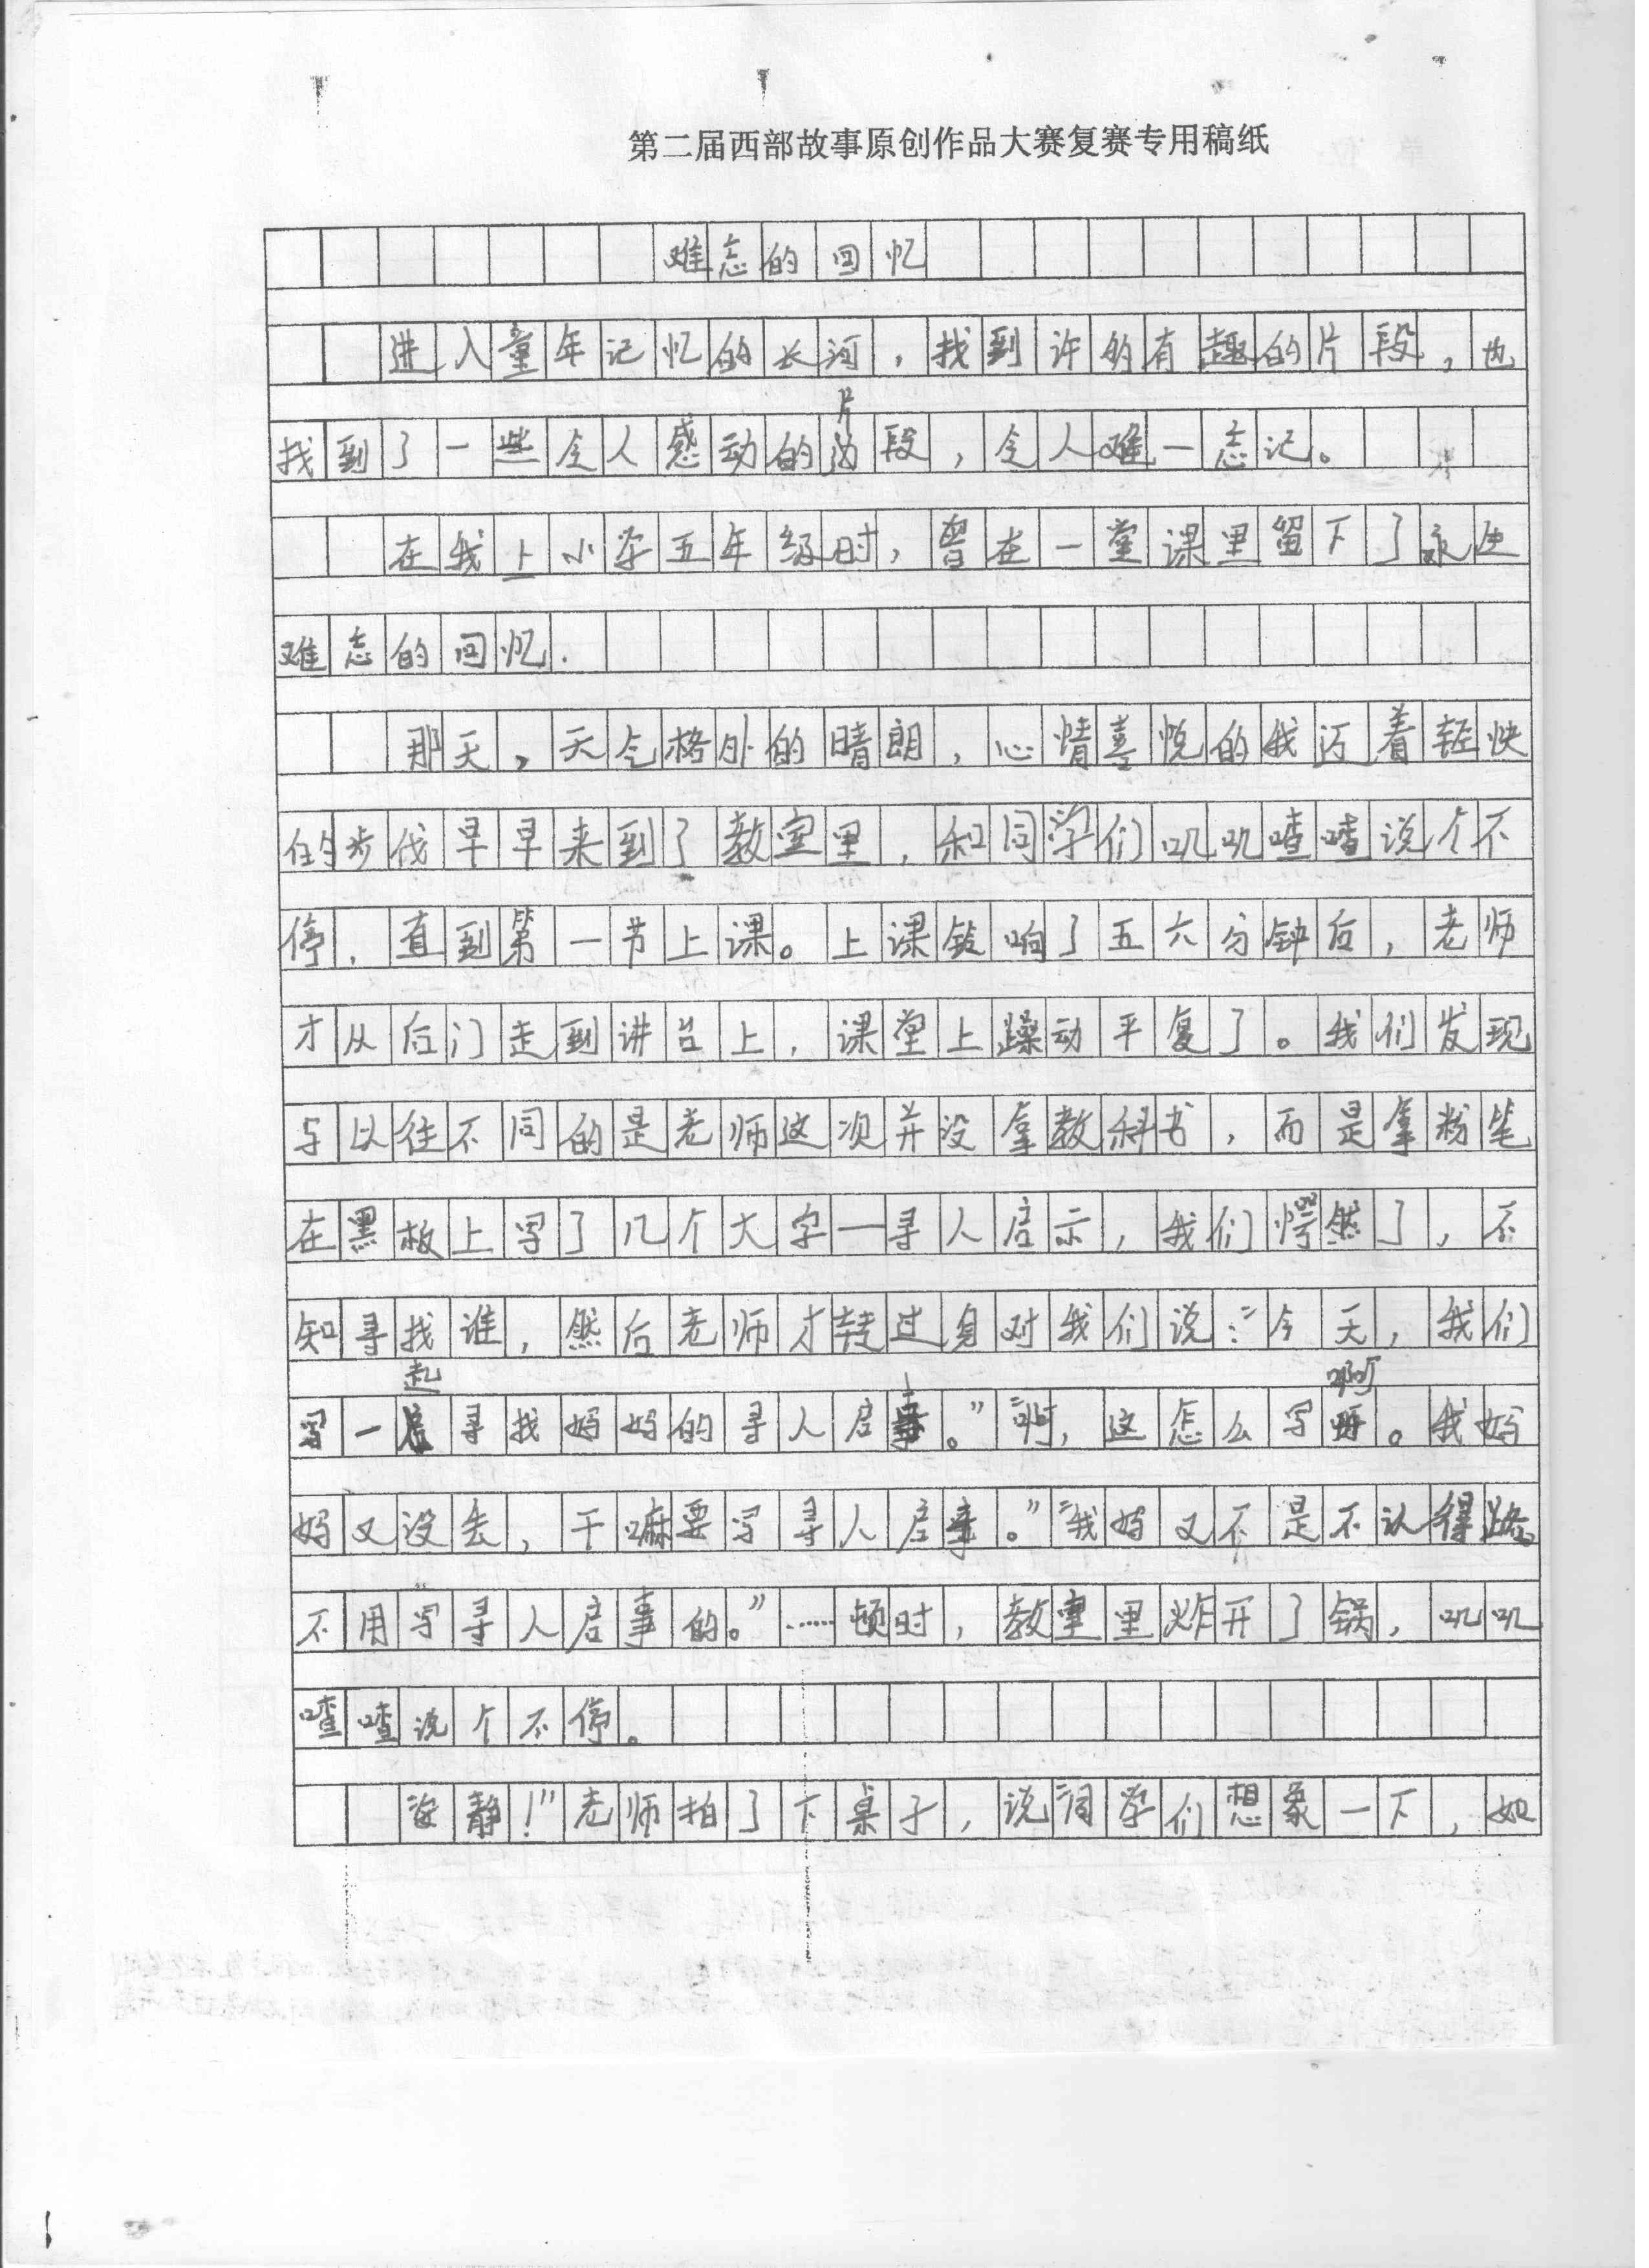 第二届西部故事原创作品大赛复赛专用稿纸
难忘的回忆
进入童年记忆的长河，找到许的有趣的片段，也
找到了一些令人感动的片段，令人难一忘记。
在我上小学五年级时，曾在一堂课里留下了永远
难忘的回忆.
那天，天气格外的晴朗，心情喜悦的我迈着轻快
的步伐早早来到了教室里，和同学们叽叽喳喳说个不
停，直到第一节上课。上课铃响了五六分钟后，老师
才从后门走到讲台上，课堂上躁动平复了。我们发现
与以往不同的是老师这次并没拿教科书，而是拿粉笔
在黑板上写了几个大字—寻人启示，我们愕然了，不
知寻找谁，然后老师才转过身对我们说：“今天，我们
写一起寻找妈妈的寻人启事。”“啊，这怎么写啊。我妈
妈又没丢，干嘛要写寻人启事。”“我妈又不是不认得路。
不用写寻人启事的。”……顿时，教室里炸开了锅，叽叽
喳喳说个不停。
安静！”老师拍了下桌子，说“同学们想象一下，如